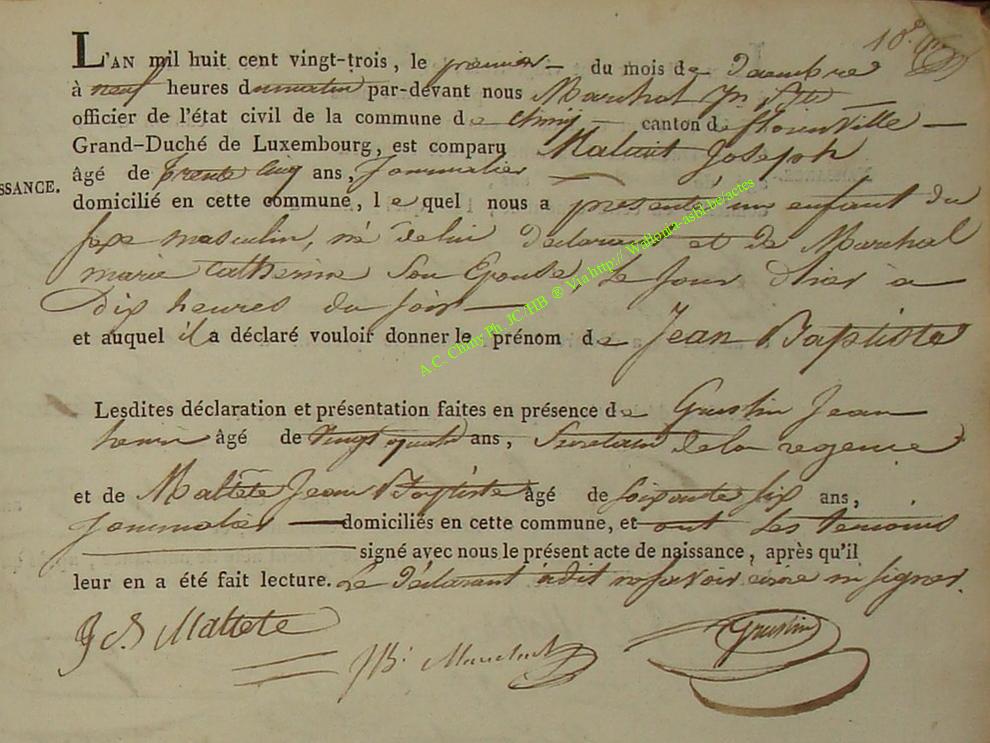 10.e
L'AN mil huit cent vingt-trois, le premier du mois de Décembre
à neuf heures du matin par-devant nous Maréchal
officier de l'état civil de la commune de Chiny canton de florenville
Grand-Duché de Luxembourg, est comparu Joseph
SSANCE.
âgé de trente cinq ans, Jornnalier
domicilié en cette commune, le quel nous a présenté un enfant du
sexe masculin, né de lui déclarant et de Maréchal
marie Catherine Son Epouse, le jour d'hier a
Dix heures du soir
et auquel il a déclaré vouloir donner le prénom de Jean Baptiste
A.C. Chiny Ph JC/HB ® Via http:// Wallonia-asbl-be/actes
Lesdites déclaration et présentation faites en présence de Grustin Jean
henri âgé de vingt quatre ans, Secretaire de la regence
et de Maltête Jean Baptiste âgé de soixante six ans,
Jornnalier domiciliés en cette commune, et ont les temoins
signé avec nous le présent acte de naissance, après qu'il
leur en a été fait lecture. Le Déclarant a dit ne savoir signer.
Maltete
Grustin